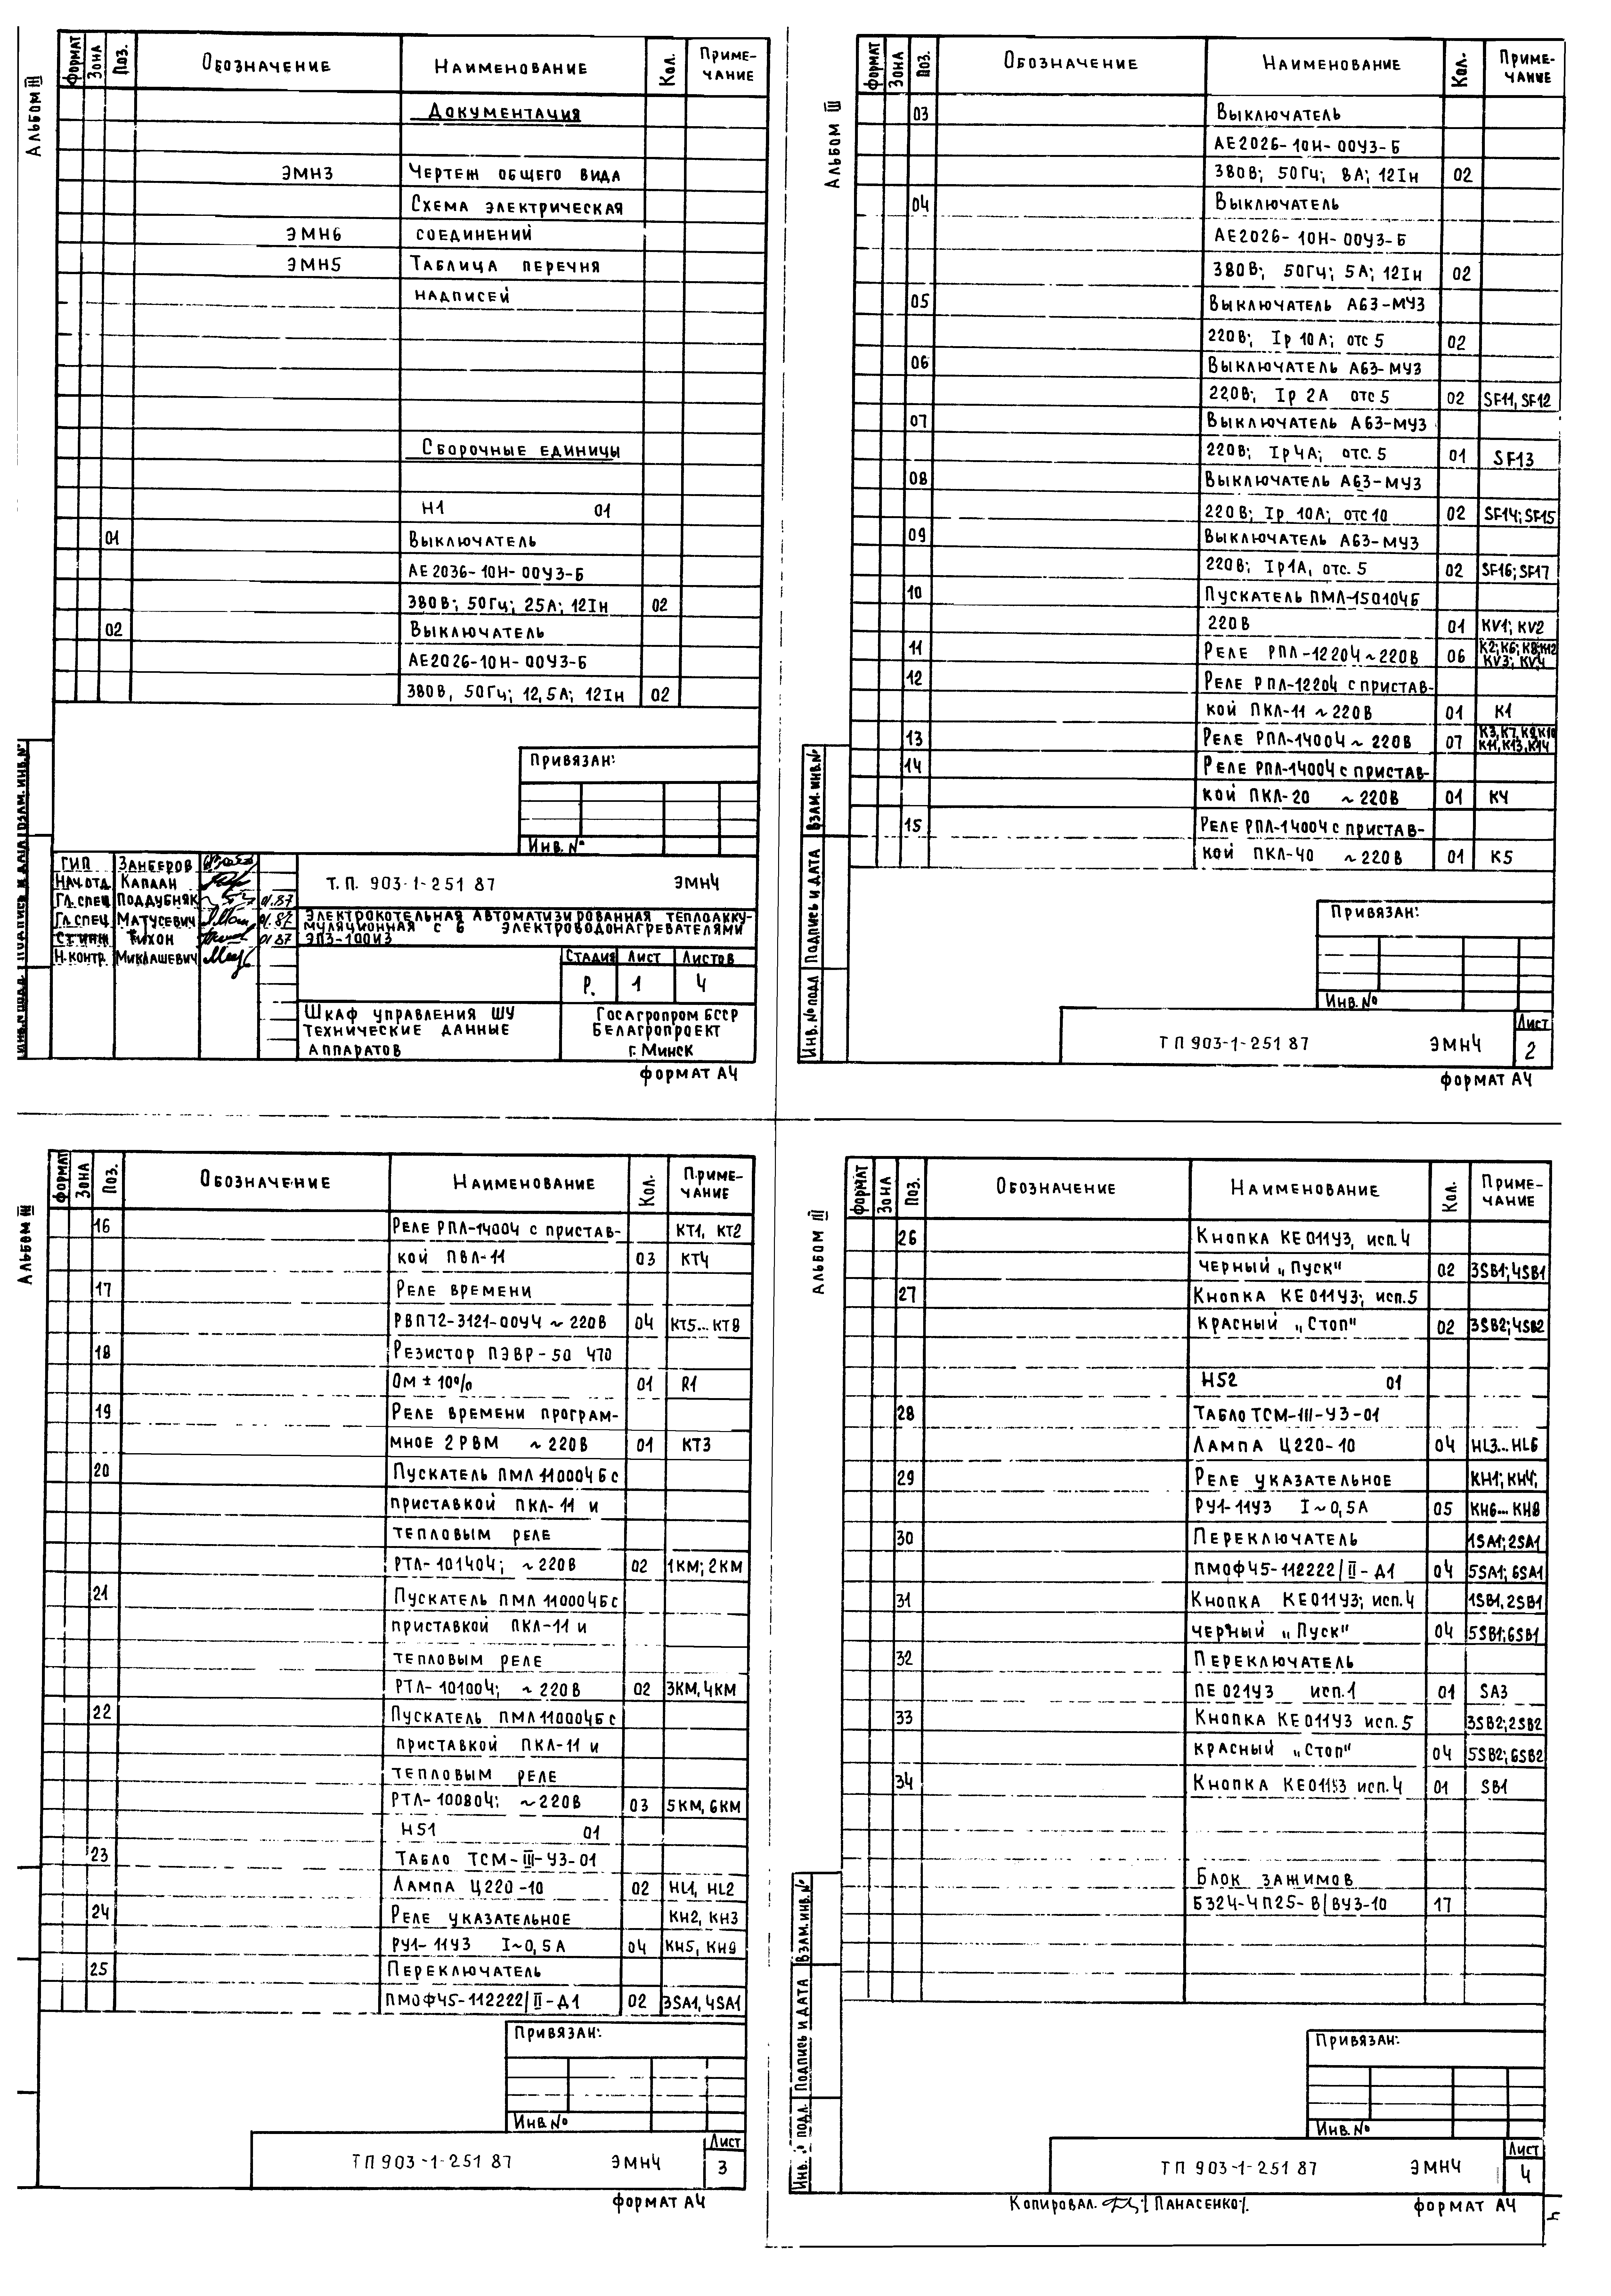 Альбом III
Формат Зона Поз. Обозначение Наименование Кол. Приме-
чание
Документация
ЭМН3 Чертеж общего вида
Схема электрическая
ЭМН6 соединений
ЭМН5 Таблица перечня
надписей
Сборочные единицы
Н1 01
01 Выключатель
АЕ2036-10Н-00У3-Б
380В; 50Гц; 25А; 12Iн 02
02 Выключатель
АЕ2026-10Н-00У3-Б
380В, 50Гц; 12,5А; 12Iн 02
Привязан:
Инв. №
ГИП Занберов
Нач.отд. Каплан
Гл.спец Поддубняк 01.87
Гл.спец Матусевич 01.87
Ст инж Тихон 01.87
Н.контр. Миклашевич
Т.П. 903-1-251 87 ЭМН4
Электрокотельная автоматизированная теплоакку-
муляционная с 6 электроводонагревателями
ЭПЗ-100И3
Стадия Лист Листов
Р. 1 4
Шкаф управления ШУ
Технические данные
аппаратов
Госагропром БССР
Белагропроект
г. Минск
Формат А4
Альбом III
Формат Зона Поз. Обозначение Наименование Кол. Приме-
чание
03 Выключатель
АЕ2026-10Н-00У3-Б
380В; 50Гц; 8А; 12Iн 02
04 Выключатель
АЕ2026-10Н-00У3-Б
380В; 50Гц; 5А; 12Iн 02
05 Выключатель А63-МУ3
220В; Iр 10А; отс 5 02
06 Выключатель А63-МУ3
220В; Iр 2А отс 5 02 SF11, SF12
07 Выключатель А63-МУ3
220В; Iр4А; отс. 5 01 SF13
08 Выключатель А63-МУ3
220В; Iр 10А; отс 10 02 SF14; SF15
09 Выключатель А63-МУ3
220В; Iр1А, отс. 5 02 SF16; SF17
10 Пускатель ПМЛ-150104Б
220В 01 KV1; KV2
11 Реле РПЛ-12204 ~220В 06 К2; К6; К8; К12
KV3; KV4
12 Реле РПЛ-12204 с пристав-
кой ПКЛ-11 ~220В 01 К1
13 Реле РПЛ-14004 ~ 220В 07 К3, К7, К9, К10
К11, К13, К14
14 Реле РПЛ-14004 с пристав-
кой ПКЛ-20 ~220В 01 К4
15 Реле РПЛ-14004 с пристав-
кой ПКЛ-40 ~220В 01 К5
Взам. инв.№
Подпись и дата
Инв. № подл
Привязан:
Инв. №
ТП 903-1-251 87 ЭМН4 Лист
2
Формат А4
Альбом III
Формат Зона Поз. Обозначение Наименование Кол. Приме-
чание
16 Реле РПЛ-14004 с пристав- КТ1, КТ2
кой ПВЛ-11 03 КТ4
17 Реле времени
РВП72-3121-00У4 ~ 220В 04 КТ5... КТ8
18 Резистор ПЭВР-50 470
Ом ± 10% 01 R1
19 Реле времени програм-
мное 2РВМ ~220В 01 КТ3
20 Пускатель ПМЛ 110004Б с
приставкой ПКЛ-11 и
тепловым реле
РТЛ-101404; ~220В 02 1КМ; 2КМ
21 Пускатель ПМЛ 110004Б с
приставкой ПКЛ-11 и
тепловым реле
РТЛ-101004; ~ 220В 02 3КМ, 4КМ
22 Пускатель ПМЛ 110004Б с
приставкой ПКЛ-11 и
тепловым реле
РТЛ-100804; ~220В 03 5КМ, 6КМ
Н51 01
23 Табло ТСМ-III-У3-01
Лампа Ц220-10 02 HL1, HL2
24 Реле указательное КН2, КН3
РУ1-11У3 I~0,5А 04 КН5, КН9
25 Переключатель
ПМОФ45-112222/II-Д1 02 3SA1, 4SA1
Привязан:
Инв.№
ТП 903-1-251 87 ЭМН4 Лист
3
Формат А4
Альбом III
Формат Зона Поз. Обозначение Наименование Кол. Приме-
чание
26 Кнопка КЕ011У3, исп.4
черный „Пуск" 02 3SB1; 4SB1
27 Кнопка КЕ011У3; исп.5
красный „Стоп" 02 3SB2; 4SB2
Н52 01
28 Табло ТСМ-III-У3-01
Лампа Ц220-10 04 HL3... HL6
29 Реле указательное КН1; КН4;
РУ1-11У3 I~0,5А 05 КН6... КН8
30 Переключатель 1SA1; 2SA1
ПМОФ45-112222/II-Д1 04 5SA1; 6SA1
31 Кнопка КЕ011У3; исп.4 1SB1, 2SB1
черный „Пуск" 04 5SB1; 6SB1
32 Переключатель
ПЕ 021У3 исп.1 01 SA3
33 Кнопка КЕ011У3 исп. 5 3SB2; 2SB2
красный „Стоп" 04 5SB2; 6SB2
34 Кнопка КЕ011У3 исп. 4 01 SB1
Блок зажимов
Б324-4П25-В/ВУ3-10 17
Взам. инв. №
Подпись и дата
Инв. № подл.
Привязан:
Инв.№
ТП 903-1-251 87 ЭМН4 Лист
4
Копировал. Панасенко Формат А4